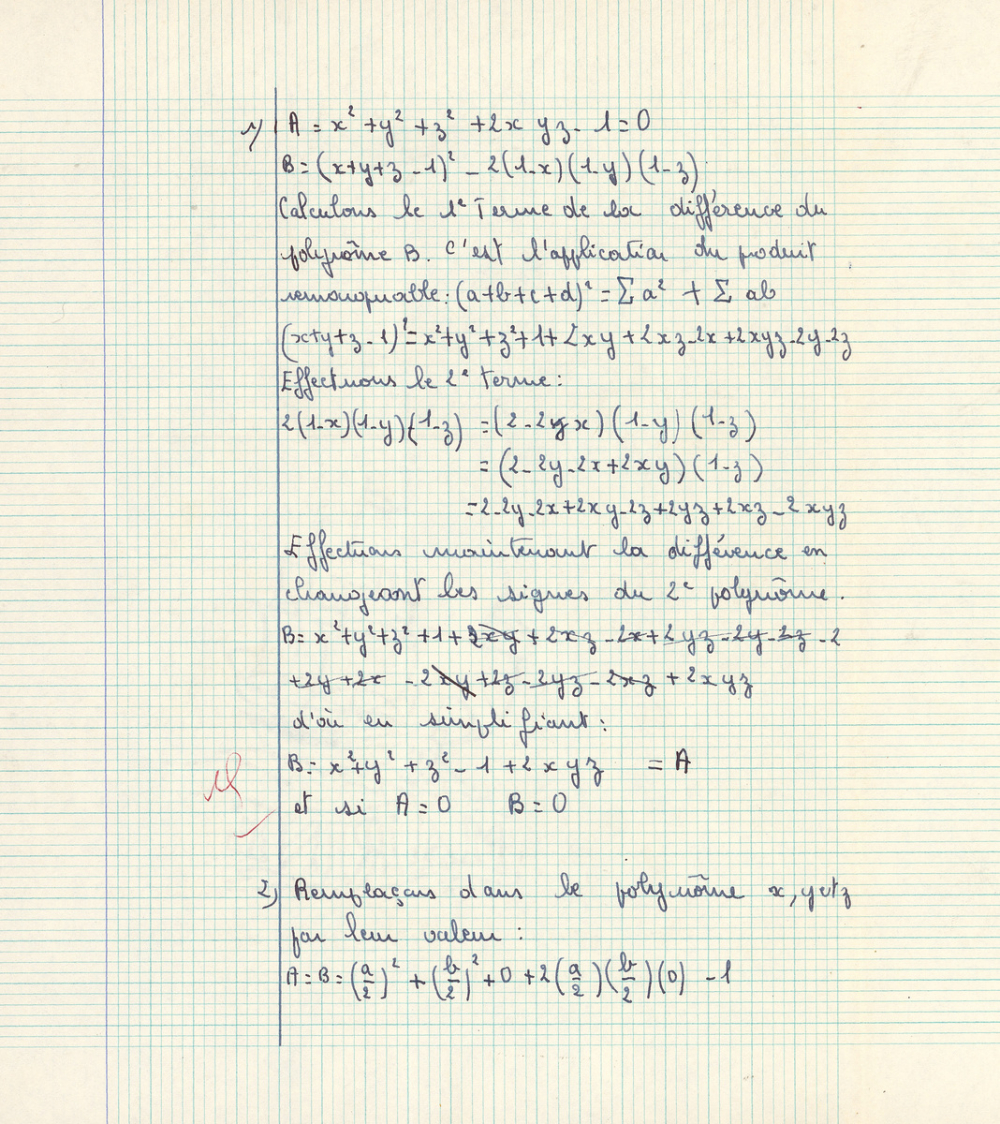 1) A = x² + y² + z² + 2x yz - 1 = 0
B = (x+y+z - 1)² - 2(1-x)(1-y)(1-z).
Calculons le 1e Terme de la différence du
polynôme B. C'est l'application du produit
remarquable : (a+b+c+d)² = Σ a² + Σ ab
(x+y+z-1)² = x²+y²+z²+1+2xy+2xz-2x+2xyz-2y-2z
Effectuons le 2e Terme :
2(1-x)(1-y)(1-z) = (2-2x)(1-y)(1-z)
= (2-2y-2x+2xy)(1-z)
= 2-2y-2x+2xy-2z+2yz+2xz-2xyz
Effectuons maintenant la différence en
changeant les signes du 2e polynôme.
B= x²+y²+z²+1+2xy+2xz-2x+2yz-2y-2z-2
+2y+2x -2xy+2z-2yz-2xz+2xyz
d'où en simplifiant :
B= x²+y²+z²-1+2xyz = A
et si A=0 B=0
2) Remplaçons dans le polynôme x, y et z
par leur valeur :
A = B = (a/2)² + (b/2)² + 0 + 2(a/2)(b/2)(0) - 1